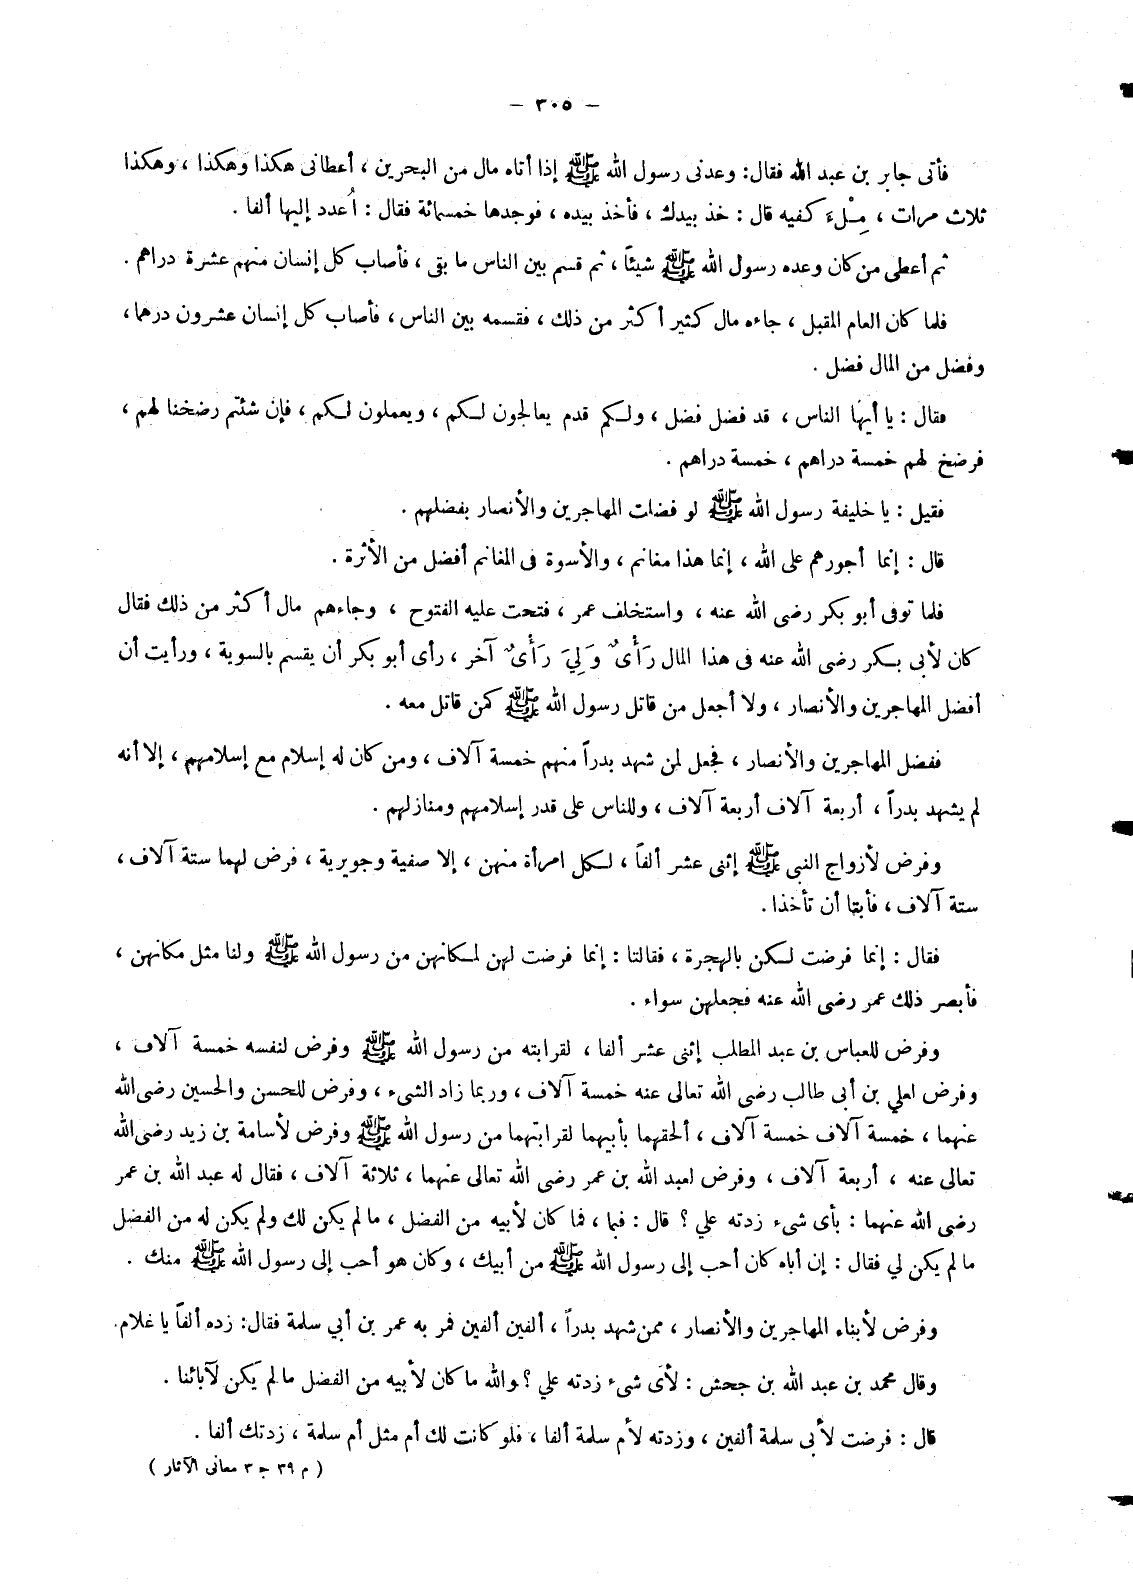 — ٣٠٥ —
فأتى جابر بن عبد الله فقال: وعدنى رسول الله ﷺ إذا أتاه مال من البحرين ، أعطانى هكذا وهكذا ، وهكذا
ثلاث مرات ، مِلْءَ كفيه قال : خذ بيدك ، فأخذ بيده ، فوجدها خمسمائة فقال : اُعدد إليها ألفا .
ثم أعطى من كان وعده رسول الله ﷺ شيئاً ، ثم قسم بين الناس ما بقى ، فأصاب كل إنسان منهم عشرة دراهم .
فلما كان العام المقبل ، جاءه مال كثير أكثر من ذلك ، فقسمه بين الناس ، فأصاب كل إنسان عشرون درهما ،
وفضل من المال فضل .
فقال : يا أيها الناس ، قد فضل فضل ، ولكم قدم يعالجون لكم ، ويعملون لكم ، فإن شئتم رضخنا لهم ،
فرضخ لهم خمسة دراهم ، خمسة دراهم .
فقيل : يا خليفة رسول الله ﷺ لو فضات المهاجرين والأنصار بفضلهم .
قال : إنما أجورهم على الله ، إنما هذا مغانم ، والأسوة فى المغانم أفضل من الأثرة .
فلما توفى أبو بكر رضى الله عنه ، واستخلف عمر ، فتحت عليه الفتوح ، وجاءهم مال أكثر من ذلك فقال
كان لأبى بكر رضى الله عنه فى هذا المال رَأْىٌ وَلِيَ رَأْىٌ آخر ، رأى أبو بكر أن يقسم بالسوية ، ورأيت أن
أفضل المهاجرين والأنصار ، ولا أجعل من قاتل رسول الله ﷺ كمن قاتل معه .
ففضل المهاجرين والأنصار ، فجعل لمن شهد بدراً منهم خمسة آلاف ، ومن كان له إسلام مع إسلامهم ، إلا أنه
لم يشهد بدراً ، أربعة آلاف أربعة آلاف ، وللناس على قدر إسلامهم ومنازلهم .
وفرض لأزواج النبى ﷺ إثنى عشر ألفاً ، لكل امرأة منهن ، إلا صفية وجويرية ، فرض لهما ستة آلاف ،
ستة آلاف ، فأبتا أن تأخذا .
فقال : إنما فرضت لكن بالهجرة ، فقالتا : إنما فرضت لهن لمكانهن من رسول الله ﷺ ولنا مثل مكانهن ،
فأبصر ذلك عمر رضى الله عنه فجعلهن سواء .
وفرض للعباس بن عبد المطلب إثنى عشر ألفا ، لقرابته من رسول الله ﷺ وفرض لنفسه خمسة آلاف ،
وفرض لعلي بن أبى طالب رضى الله تعالى عنه خمسة آلاف ، وربما زاد الشىء ، وفرض للحسن والحسين رضى الله
عنهما ، خمسة آلاف خمسة آلاف ، ألحقهما بأبيهما لقرابتهما من رسول الله ﷺ وفرض لأسامة بن زيد رضى الله
تعالى عنه ، أربعة آلاف ، وفرض لعبد الله بن عمر رضى الله تعالى عنهما ، ثلاثة آلاف ، فقال له عبد الله بن عمر
رضى الله عنهما : بأى شىء زدته علي ؟ قال : فبما ، فما كان لأبيه من الفضل ، ما لم يكن لك ولم يكن له من الفضل
ما لم يكن لي فقال : إن أباه كان أحب إلى رسول الله ﷺ من أبيك ، وكان هو أحب إلى رسول الله ﷺ منك .
وفرض لأبناء المهاجرين والأنصار ، ممن شهد بدراً ، ألفين ألفين فمر به عمر بن أبي سلمة فقال: زده ألفاً يا غلام.
وقال محمد بن عبد الله بن جحش : لأى شىء زدته علي ؟ والله ما كان لأبيه من الفضل ما لم يكن لآبائنا .
قال : فرضت لأبى سلمة ألفين ، وزدته لأم سلمة ألفا ، فلو كانت لك أم مثل أم سلمة ، زدتك ألفا .
( م ٣٩ ج ٣ معانى الآثار )